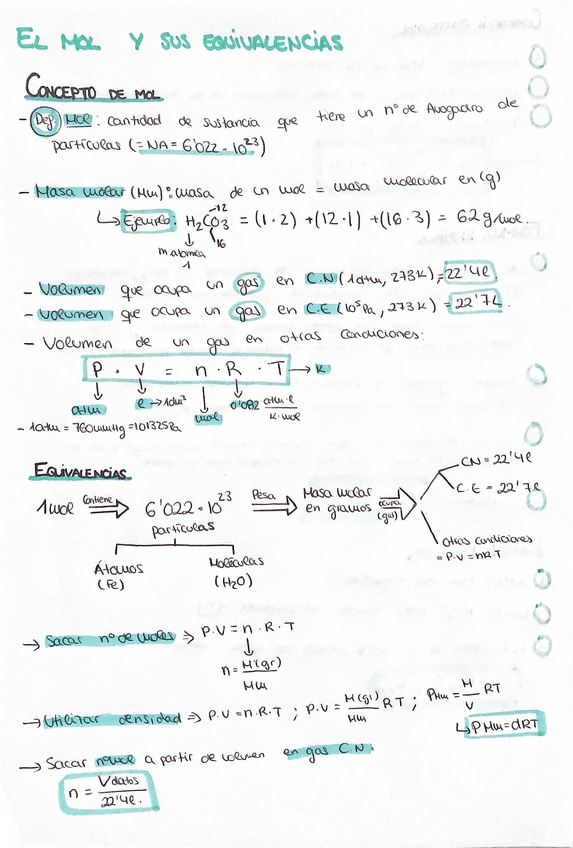 EL MOL Y SUS EQUIVALENCIAS
CONCEPTO DE MOL
- Def MOL: cantidad de sustancia que tiene un nº de Avogadro de
partículas (= NA = 6'022 · 10²³)
- Masa molar (Mm): masa de un mol = masa molecular en (g)
↳ Ejemplo: H₂CO₃ = (1·2) + (12·1) + (16·3) = 62 g/mol.
12
16
m. atómica
1
- Volumen que ocupa un gas en C.N (1atm, 273K) = 22'4l
- Volumen que ocupa un gas en C.E (10⁵Pa, 273K) = 22'7L.
- Volumen de un gas en otras condiciones:
P · V = n · R · T → K
atm
l → 1dm³
mol
0'082 atm·l / K·mol
- 1atm = 760mmHg = 101325Pa
EQUIVALENCIAS
1 mol contiene ⇒ 6'022·10²³ partículas Pesa ⇒ Masa molar en gramos ocupa (gas) ⇒
CN = 22'4l
C.E = 22'7l
Otras condiciones
= P.V = nRT
Átomos (Fe)
Moléculas (H₂O)
→ Sacar nº de moles ⇒ P.V = n.R.T
↓
n = M(gr) / Mm
→ Utilizar densidad ⇒ P.V = n.R.T ; P.V = M(gr)/Mm RT ; PMm = M/V RT
↳ PMm = dRT
→ Sacar nº mol a partir de volumen en gas C.N.
n = V datos / 22'4l.